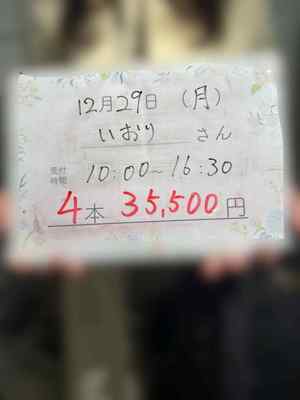 12月29日 (月)
いおり さん
受付時間 10:00~16:30
4本 35,500円